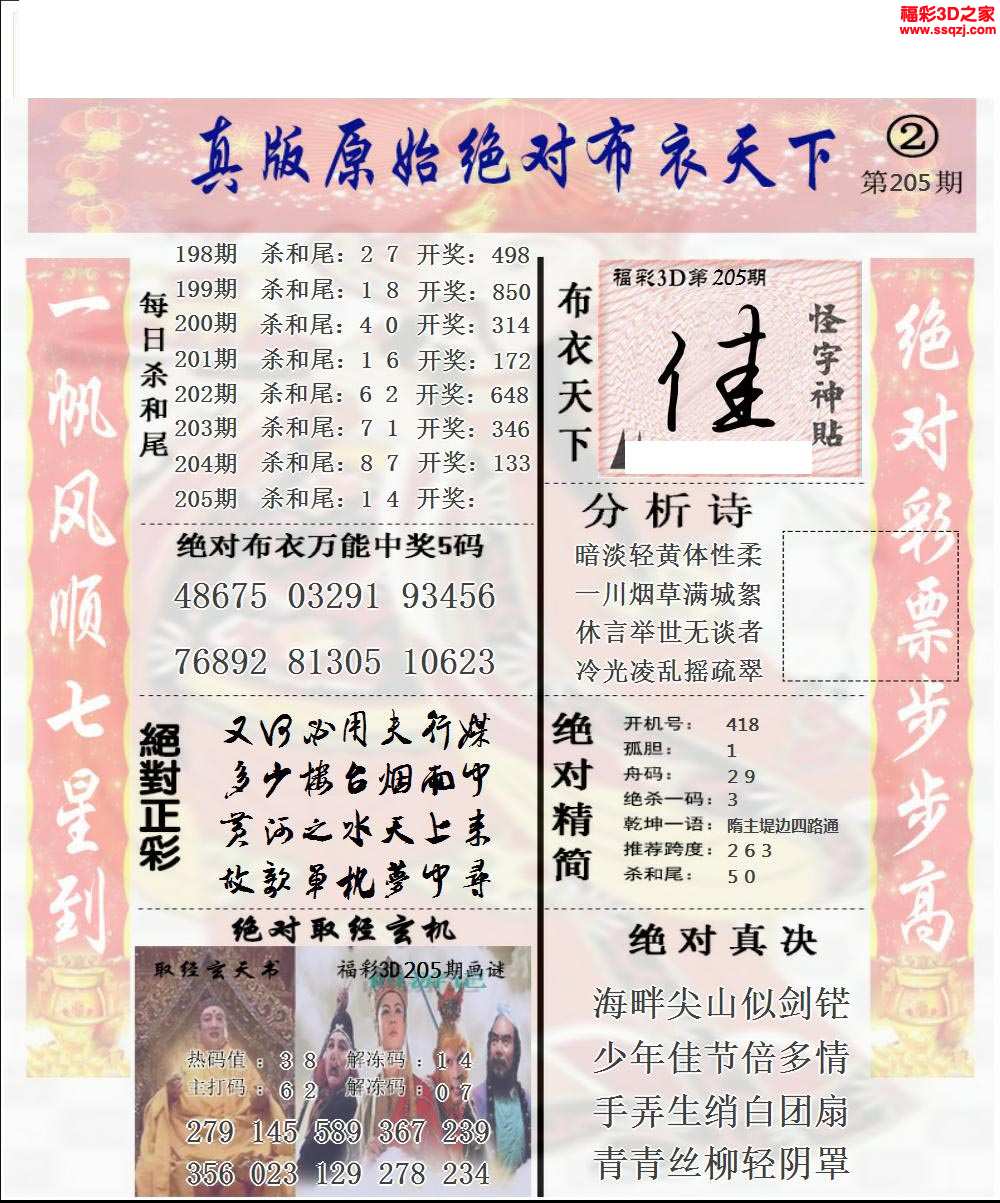 福彩3D之家
www.ssqzj.com
真版原始绝对布衣天下
②
第205期
一帆风顺七星到
每日杀和尾
198期 杀和尾：2 7 开奖：498
199期 杀和尾：1 8 开奖：850
200期 杀和尾：4 0 开奖：314
201期 杀和尾：1 6 开奖：172
202期 杀和尾：6 2 开奖：648
203期 杀和尾：7 1 开奖：346
204期 杀和尾：8 7 开奖：133
205期 杀和尾：1 4 开奖：
绝对布衣万能中奖5码
48675 03291 93456
76892 81305 10623
絕對正彩
又何必用夫行媒
多少楼台烟雨中
黄河之水天上来
故欹单枕夢中尋
绝对取经玄机
取经玄天书
福彩3D205期画谜
热码值：3 8 解冻码：1 4
主打码：6 2 解冻码：0 7
279 145 589 367 239
356 023 129 278 234
布衣天下
福彩3D第205期
佳
怪字神貼
分析诗
暗淡轻黄体性柔
一川烟草满城絮
休言举世无谈者
冷光凌乱摇疏翠
绝对精简
开机号： 418
孤胆： 1
舟码： 2 9
绝杀一码：3
乾坤一语：隋主堤边四路通
推荐跨度：2 6 3
杀和尾： 5 0
绝对真决
海畔尖山似剑铓
少年佳节倍多情
手弄生绡白团扇
青青丝柳轻阴罩
绝对彩票步步高